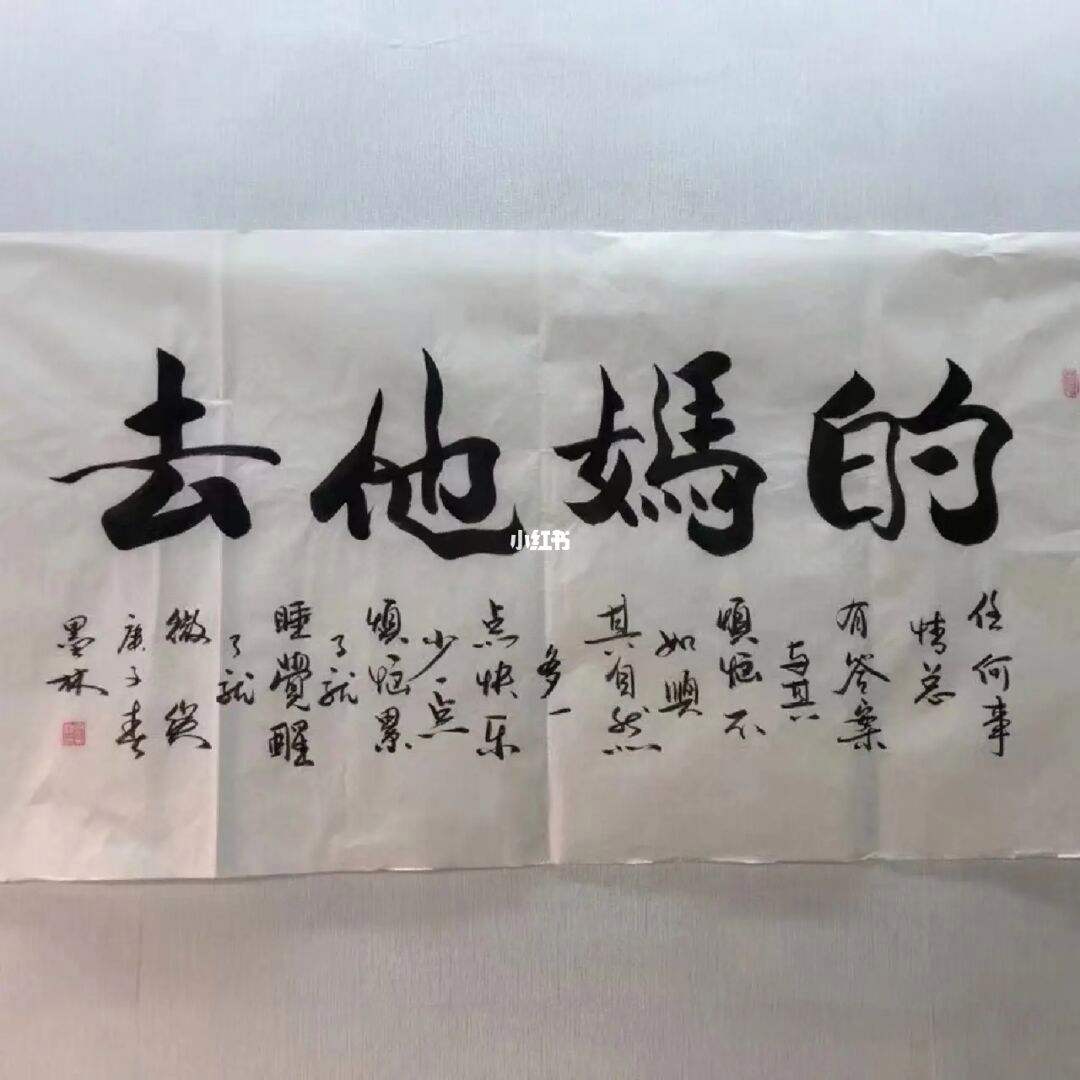 去他媽的
任何事
情总
有答案
与其
煩恼不
如順
其自然
多一
点快乐
少一点
煩恼累
了就
睡覺醒
了就
微笑
庚子春
墨林
小红书